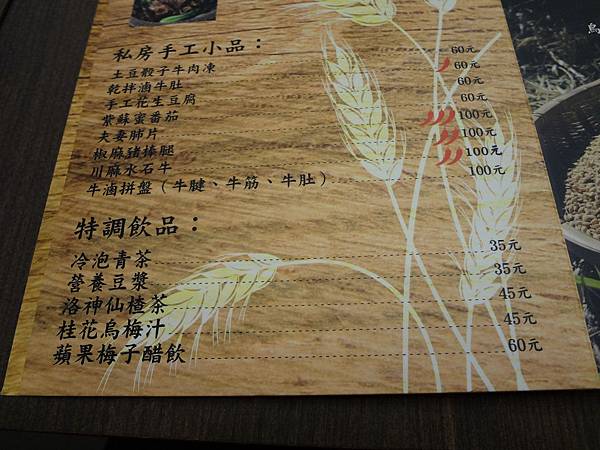 私房手工小品：
土豆骰子牛肉凍 60元
乾拌滷牛肚 60元
手工花生豆腐 60元
紫蘇蜜番茄 60元
夫妻肺片 100元
椒麻豬捧腿 100元
川麻水石牛 100元
牛滷拼盤（牛腱、牛筋、牛肚） 100元
特調飲品：
冷泡青茶 35元
營養豆漿 35元
洛神仙楂茶 45元
桂花烏梅汁 45元
蘋果梅子醋飲 60元